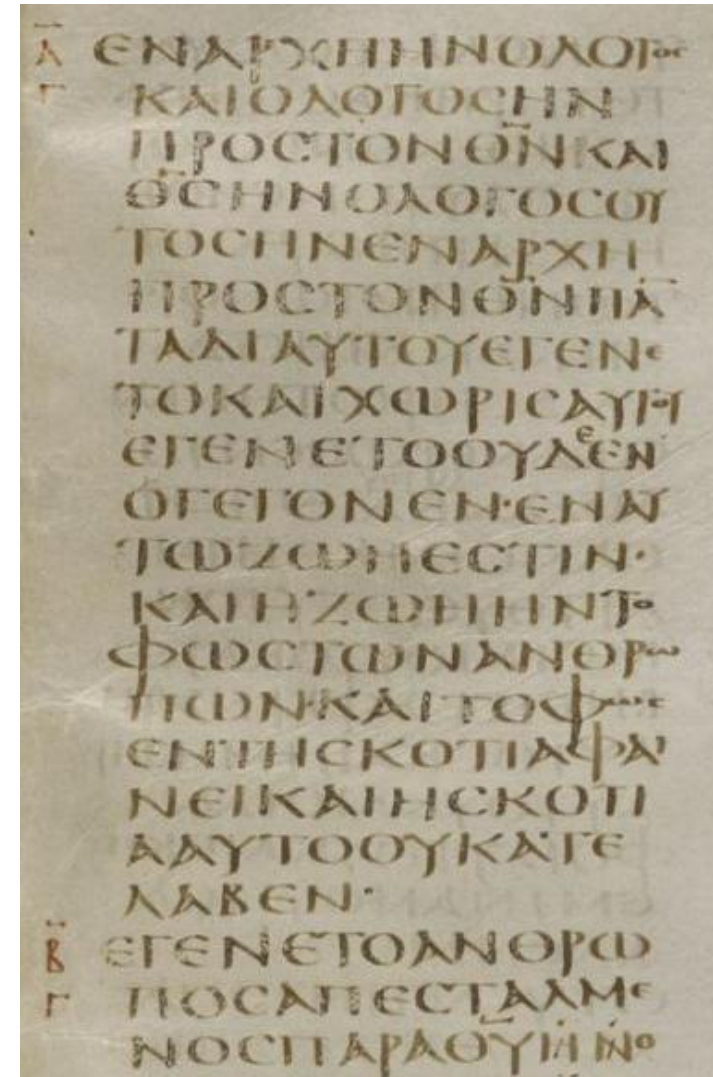 Α̅ ΕΝΑΡΧΗΗΝΟΛΟΓΟϹ
Γ ΚΑΙΟΛΟΓΟϹΗΝ
ΠΡΟϹΤΟΝΘ̅Ν̅ΚΑΙ
Θ̅Ϲ̅ΗΝΟΛΟΓΟϹΟΥ
ΤΟϹΗΝΕΝΑΡΧΗ
ΠΡΟϹΤΟΝΘ̅Ν̅ΠΑ̅
ΤΑΔΙΑΥΤΟΥΕΓΕΝΕ
ΤΟΚΑΙΧΩΡΙϹΑΥΤΟΥ
ΕΓΕΝΕΤΟΟΥΔεΕΝ
ΟΓΕΓΟΝΕΝ·ΕΝΑΥ
ΤΩΖΩΗΕϹΤΙΝ·
ΚΑΙΗΖΩΗΗΝΤΟ
ΦΩϹΤΩΝΑΝΘΡΩ
ΠΩΝ·ΚΑΙΤΟΦΩϹ
ΕΝΤΗϹΚΟΤΙΑΦΑΙ
ΝΕΙΚΑΙΗϹΚΟΤΙ
ΑΑΥΤΟΟΥΚΑΤΕ
ΛΑΒΕΝ·
Β̅ ΕΓΕΝΕΤΟΑΝΘΡΩ
Γ ΠΟϹΑΠΕϹΤΑΛΜΕ
ΝΟϹΠΑΡΑΘ̅Υ̅ΗΝΟ